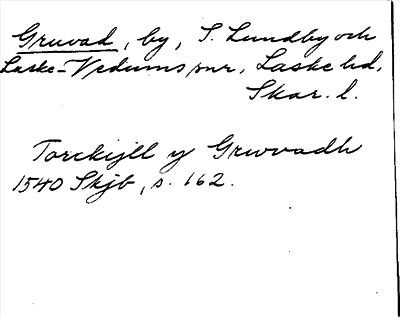 Gruvad, by, S. Lundby och
Laske-Vedums snr, Laske hd,
Skar. l.
Torckijll y Grwvadh
1540 Skjb, s. 162.